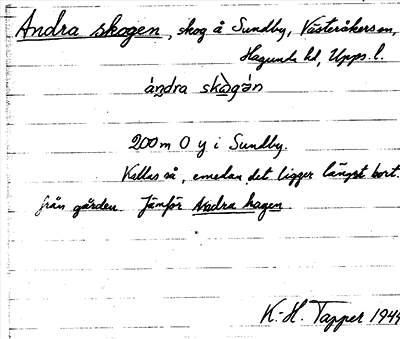 Andra skogen, skog å Sundby, Västeråkers sn,
Hagunda hd, Upps. l.
ándra skògǝn
200 m O y i Sundby.
Kallas så, emedan det ligger längst bort
från gården. Jämför Andra hagen.
K.-H. Tapper 1944